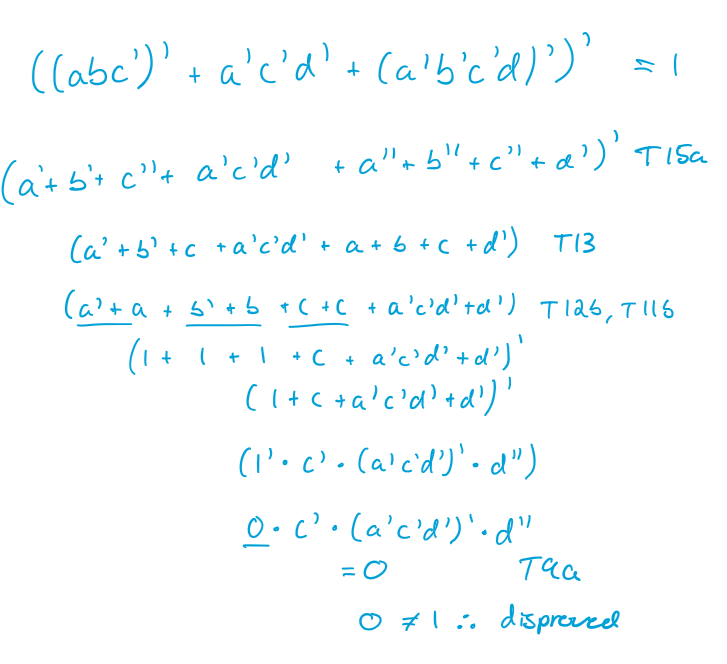 ((abc')' + a'c'd' + (a'b'c'd)')' = 1
(a'+ b'+ c''+ a'c'd' + a''+ b''+ c''+ d')' T15a
(a' + b' + c + a'c'd' + a + b + c + d') T13
(a' + a + b' + b + c + c + a'c'd' + d') T12b, T11b
(1 + 1 + 1 + c + a'c'd' + d')'
(1 + c + a'c'd' + d')'
(1' · c' · (a'c'd')' · d'')
0 · c' · (a'c'd')' · d''
= 0 T9a
0 ≠ 1 ∴ disproved